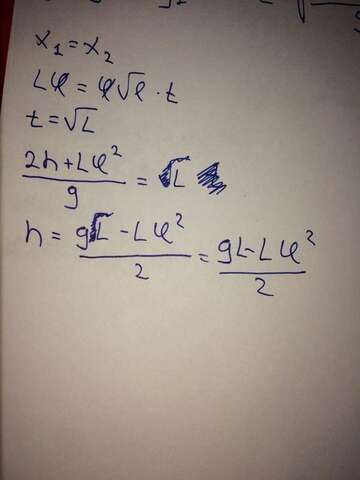 x₁ = x₂
Lφ = φ√l · t
t = √L
(2h + Lφ²)/g = L
h = (gL - Lφ²)/2 = (gL - Lφ²)/2